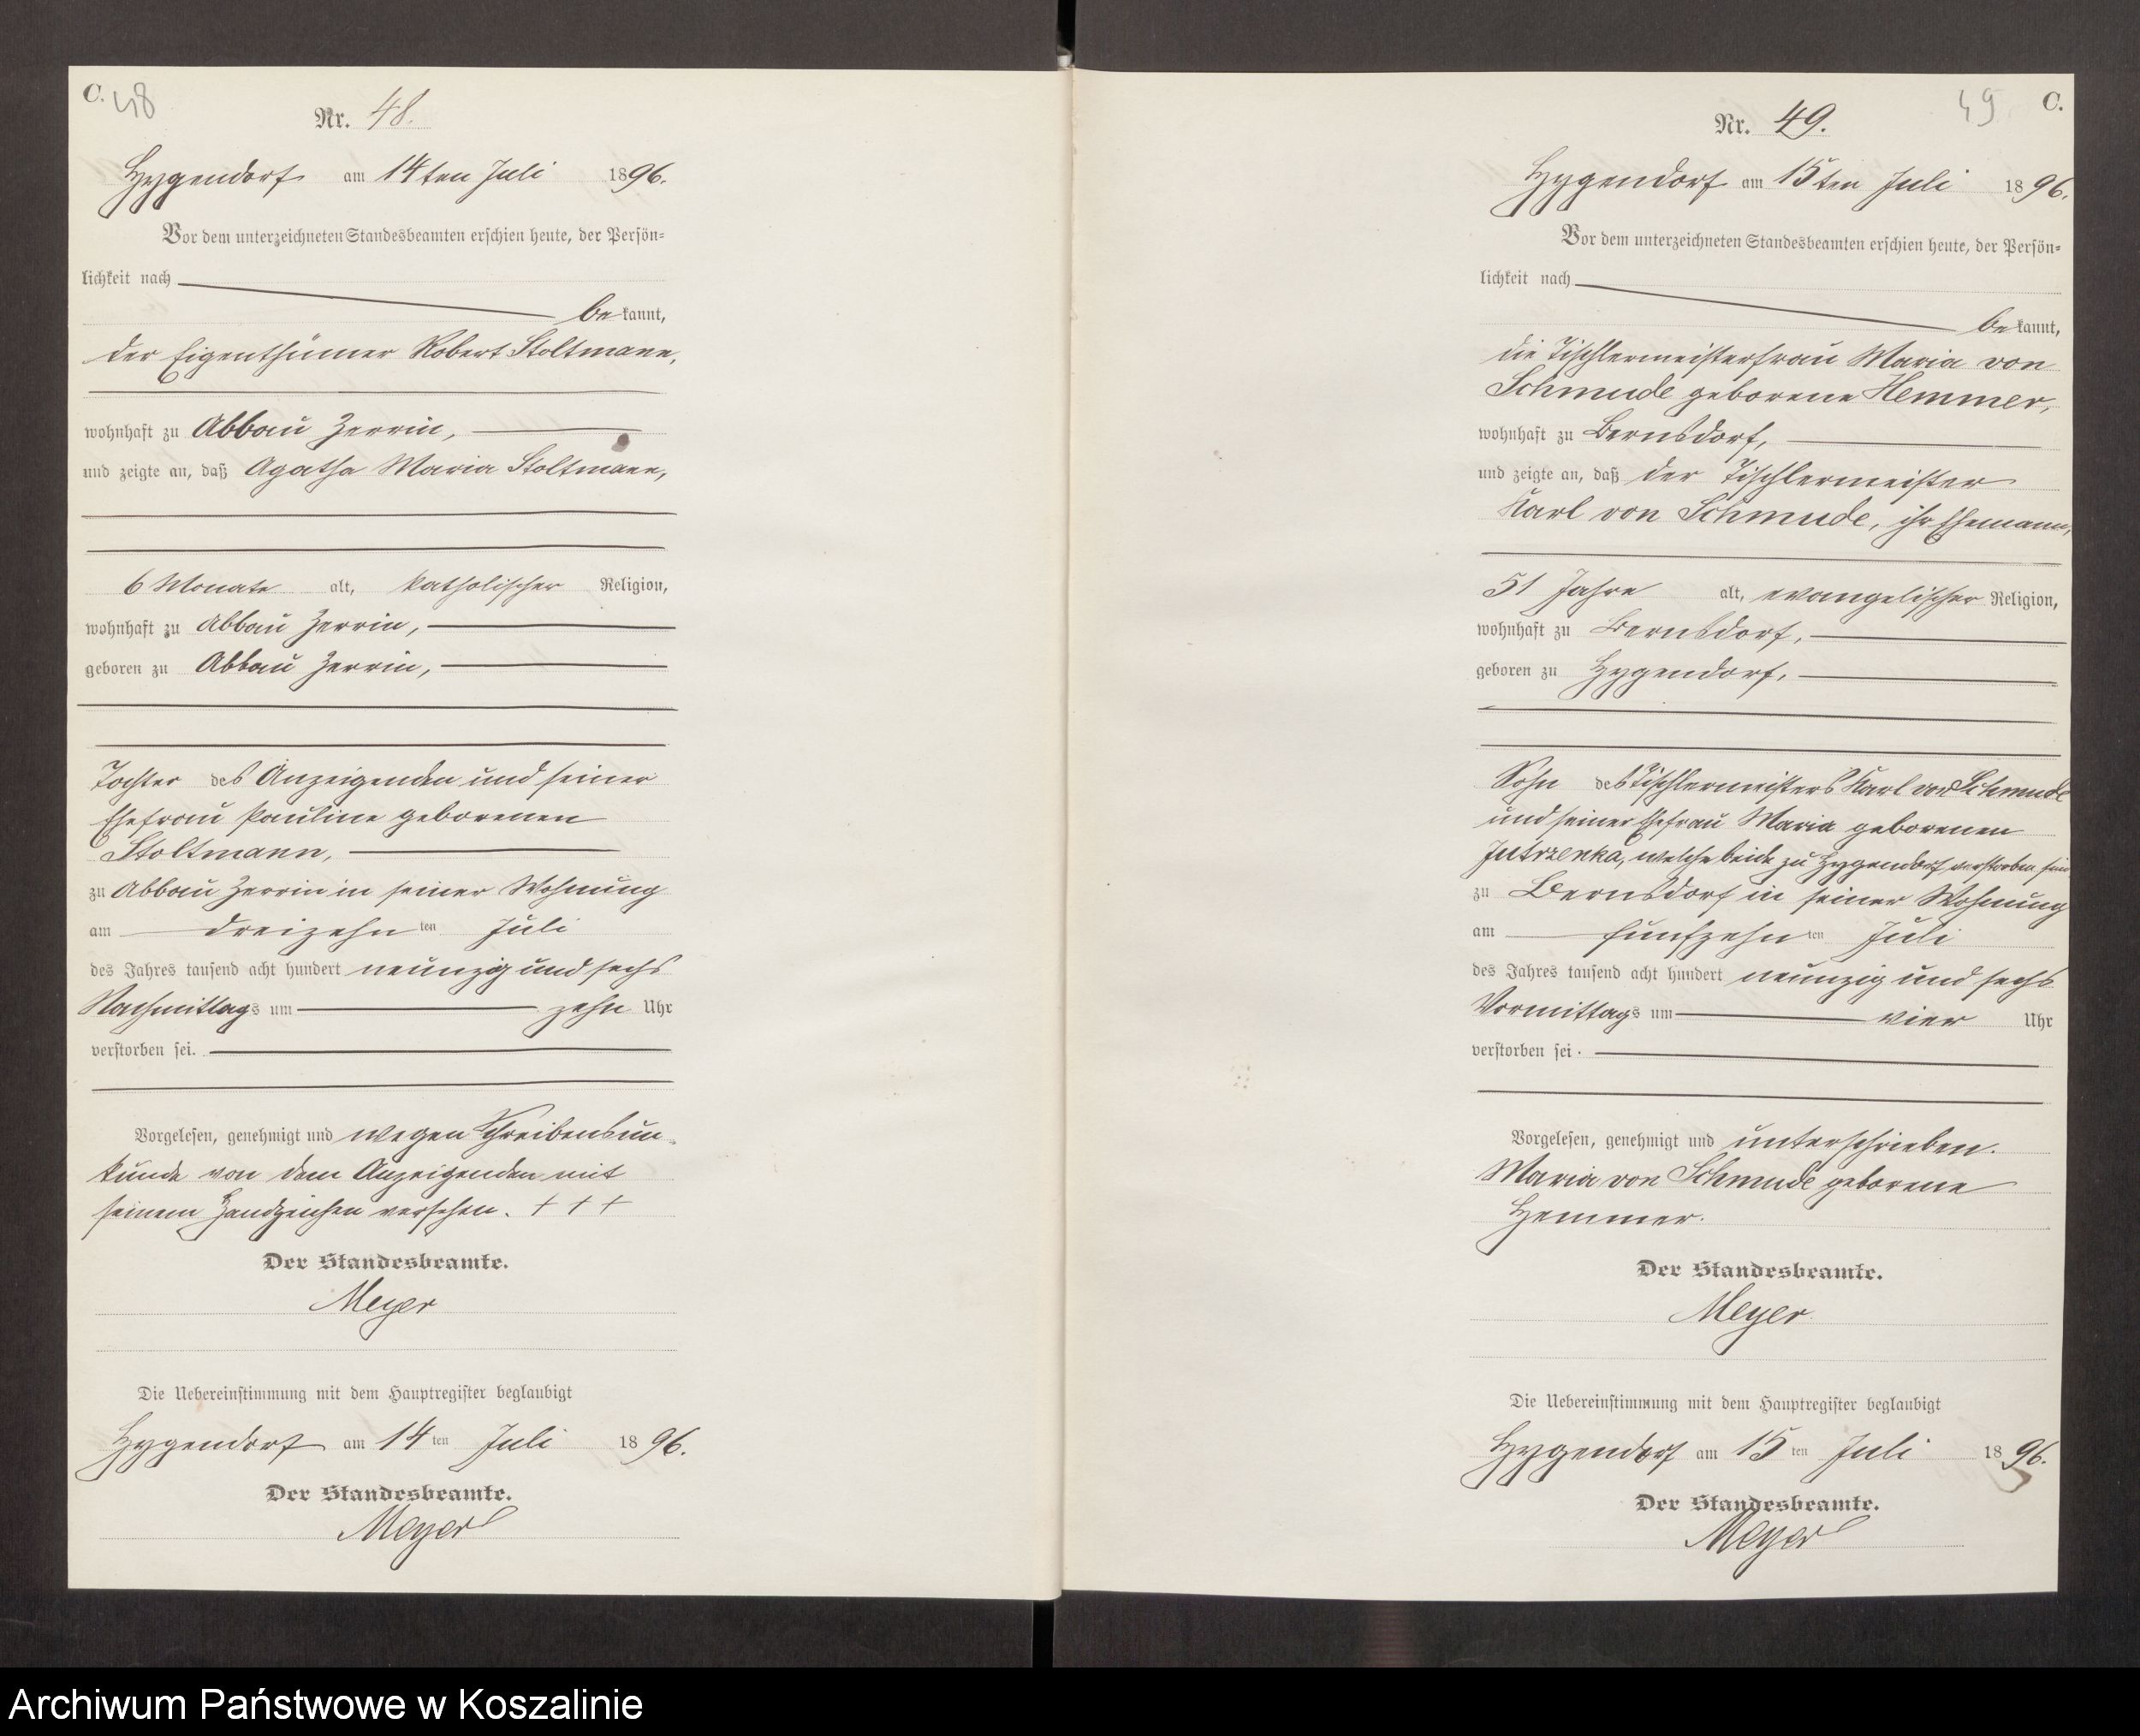 C.
48
Nr. 48.
Hygendorf am 14ten Juli 1896.
Vor dem unterzeichneten Standesbeamten erschien heute, der Persön-
lichkeit nach
bekannt,
der Eigenthümer Robert Stoltmann,
wohnhaft zu Abbau Zerrin,
und zeigte an, daß Agatha Maria Stoltmann,
6 Monate alt, katholischer Religion,
wohnhaft zu Abbau Zerrin,
geboren zu Abbau Zerrin,
Tochter des Anzeigenden und seiner
Ehefrau Pauline geborenen
Stoltmann,
zu Abbau Zerrin in seiner Wohnung
am dreizehnten Juli
des Jahres tausend acht hundert neunzig und sechs
Nachmittags um zehn Uhr
verstorben sei.
Vorgelesen, genehmigt und wegen Schreibensun-
kunde von dem Anzeigenden mit
seinem Handzeichen versehen. + + +
Der Standesbeamte.
Meyer
Die Uebereinstimmung mit dem Hauptregister beglaubigt
Hygendorf am 14ten Juli 1896.
Der Standesbeamte.
Meyer
49
C.
Nr. 49.
Hygendorf am 15ten Juli 1896.
Vor dem unterzeichneten Standesbeamten erschien heute, der Persön-
lichkeit nach
bekannt,
die Tischlermeisterfrau Maria von
Schmude geborene Hemmer,
wohnhaft zu Bernsdorf,
und zeigte an, daß der Tischlermeister
Karl von Schmude, ihr Ehemann,
51 Jahre alt, evangelischer Religion,
wohnhaft zu Bernsdorf,
geboren zu Hygendorf,
Sohn des Tischlermeisters Karl von Schmude
und seiner Ehefrau Maria geborenen
Jutrzenka, welche beide zu Hygendorf verstorben sind
zu Bernsdorf in seiner Wohnung
am fünfzehnten Juli
des Jahres tausend acht hundert neunzig und sechs
Vormittags um vier Uhr
verstorben sei.
Vorgelesen, genehmigt und unterschrieben.
Maria von Schmude geborene
Hemmer.
Der Standesbeamte.
Meyer
Die Uebereinstimmung mit dem Hauptregister beglaubigt
Hygendorf am 15ten Juli 1896.
Der Standesbeamte.
Meyer
Archiwum Państwowe w Koszalinie